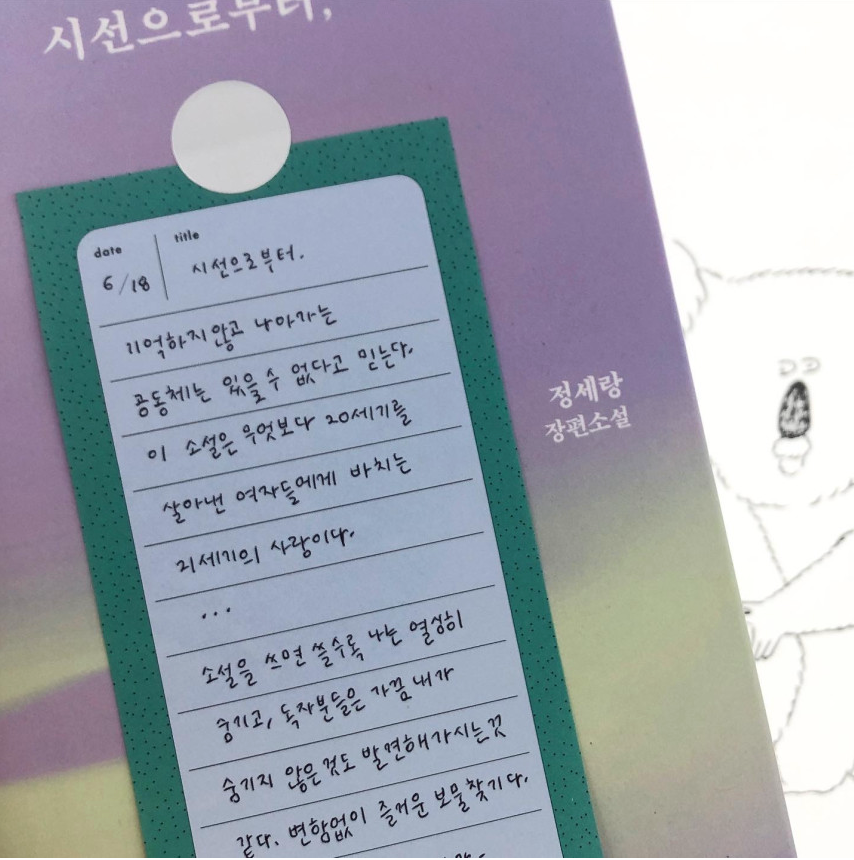 시선으로부터,
date title
6/18 시선으로부터.
기억하지 않고 나아가는
공동체는 있을 수 없다고 믿는다.
이 소설은 무엇보다 20세기를
살아낸 여자들에게 바치는
21세기의 사랑이다.
...
소설을 쓰면 쓸수록 나는 열심히
숨기고, 독자분들은 가끔 내가
숨기지 않은 것도 발견해 가시는 것
같다. 변함없이 즐거운 보물찾기다.
정세랑
장편소설